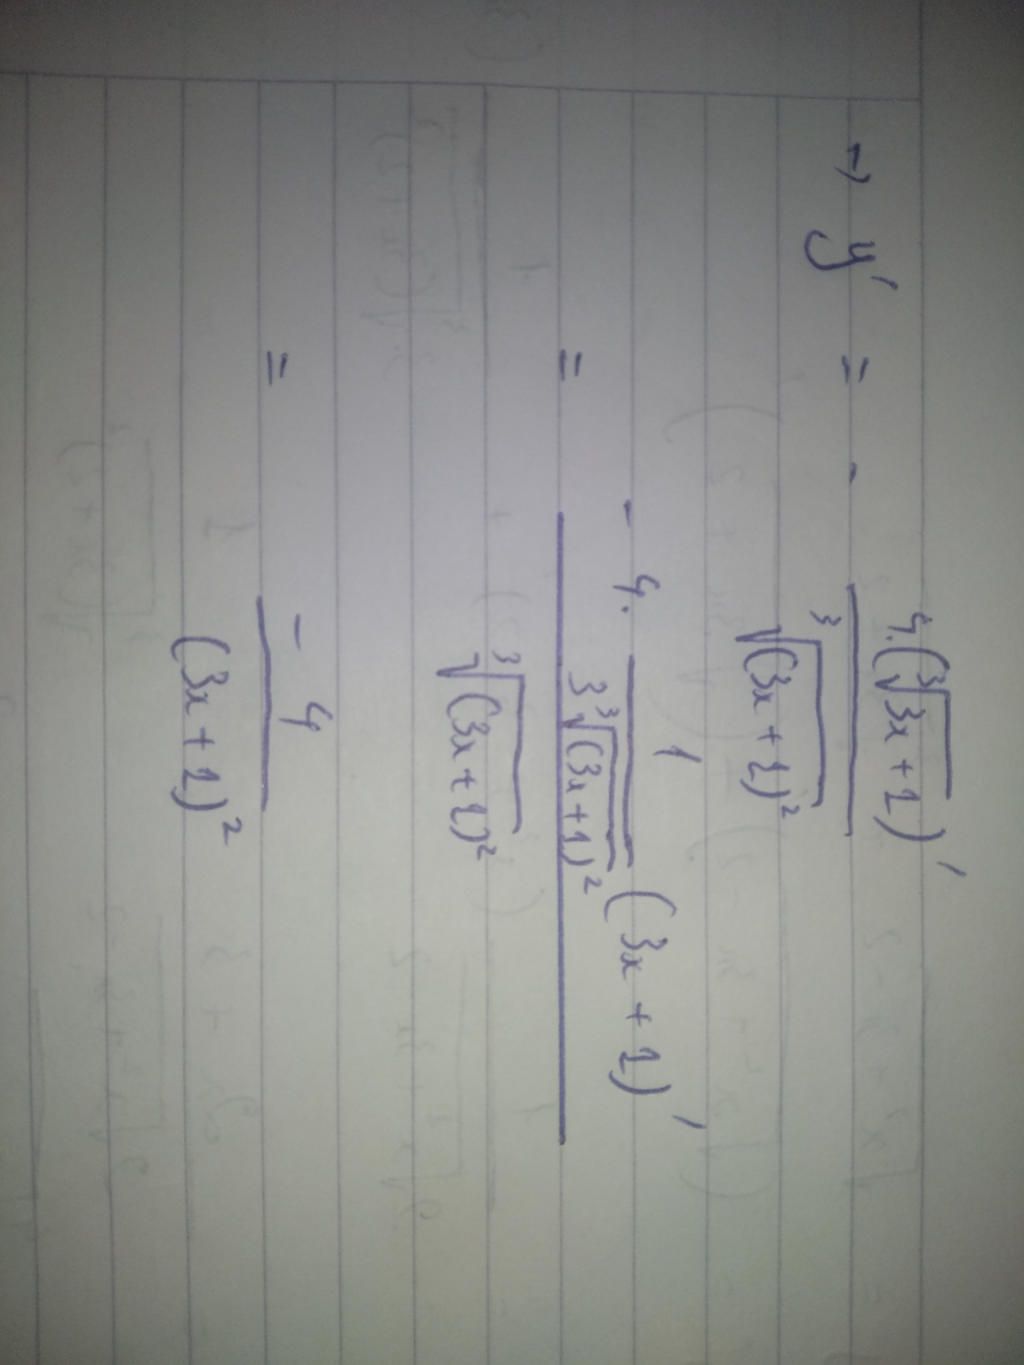 → y' = - 4.(∛(3x+1))' / ∛(3x+1)²
= - 4. 1 / 3∛(3x+1)² (3x+1)' / ∛(3x+1)²
= -4 / (3x+1)²